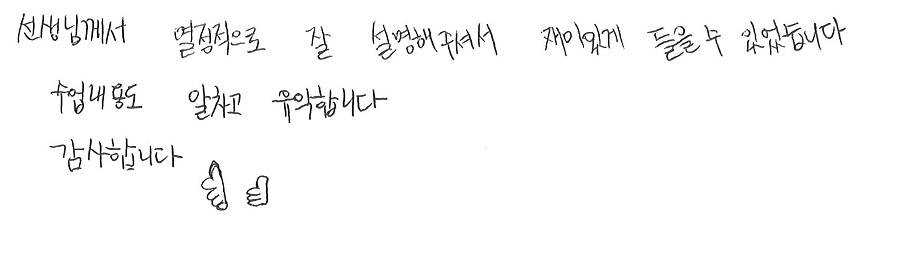 선생님께서 열정적으로 잘 설명해주셔서 재미있게 들을 수 있었습니다
수업내용도 알차고 유익합니다
감사합니다